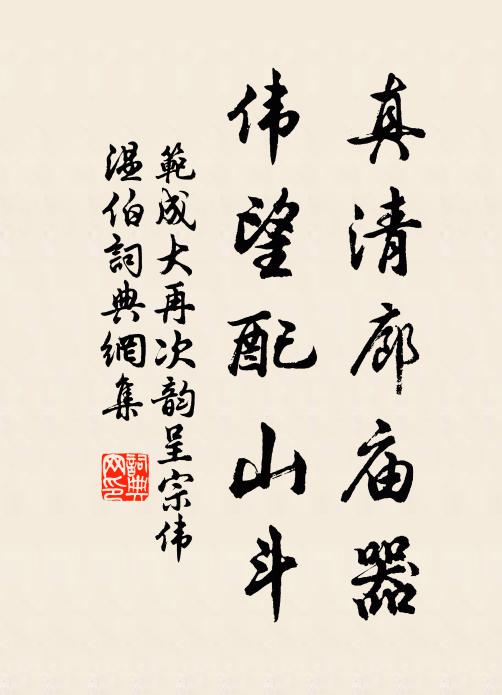 真清廊庙器
伟望配山斗
範成大再次韵呈宗伟
温伯詞典網集
詞典
网印